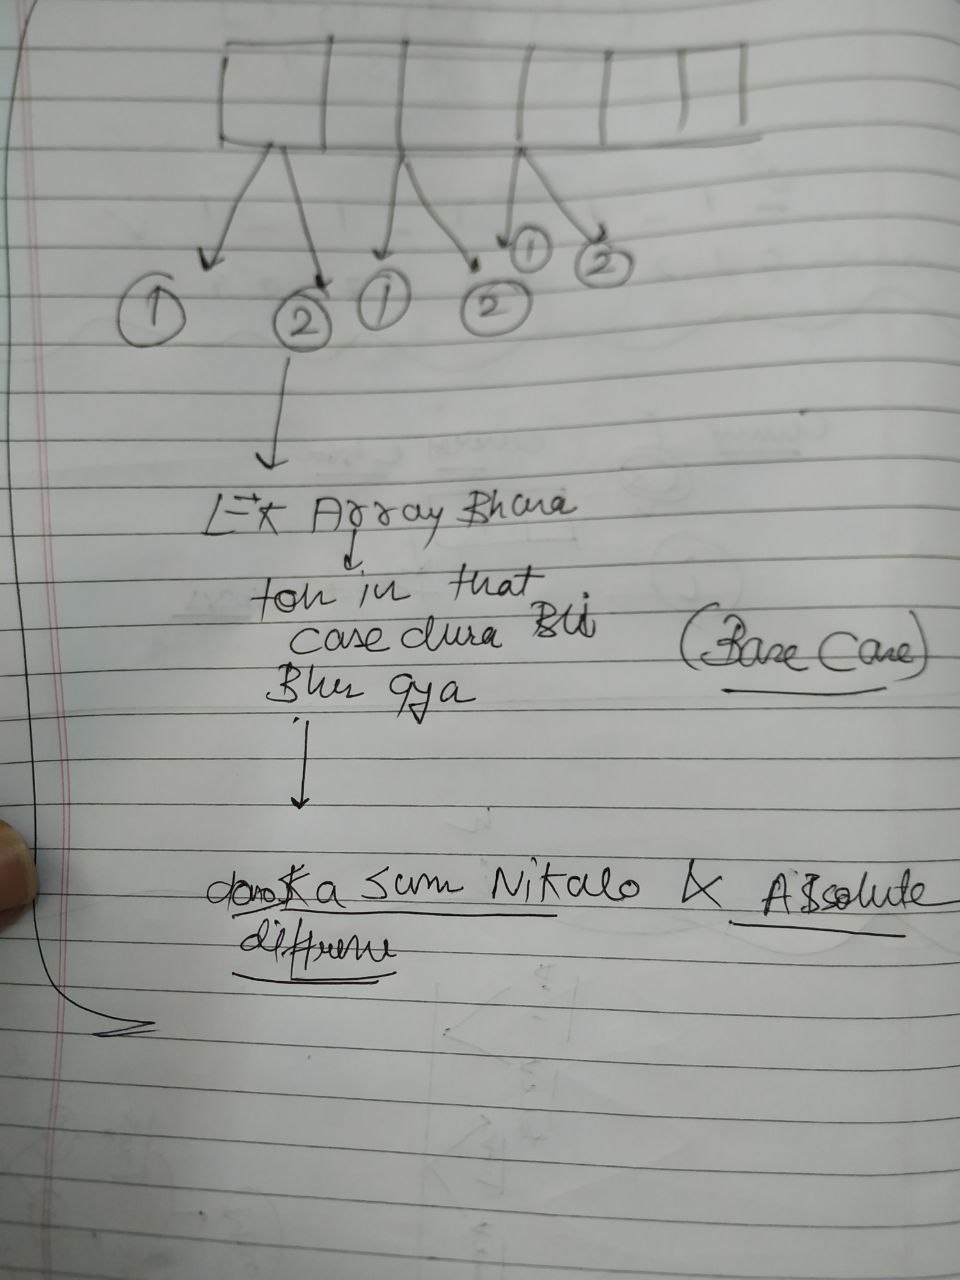 1 2 1 2 1 2
Ek Array Bhara
toh in that
case dura Bhi
Bher gya
(Base Case)
donoka sum Nikalo & Absolute
diffrene